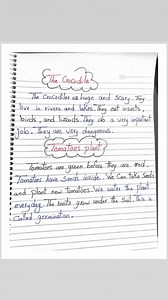 The Crocodile
The Crocodiles is huge and scary. They
live in rivers and lakes. They eat insects,
birds, and lizards. They do a very important
job. They are very dangerous.
Tomatoes plant
Tomatoes are green before they are red.
Tomatoes have seeds inside. We Can take seeds
and plant new tomatoes. We water the plant
everyday. The roots grow under the soil. this is
Called germination.